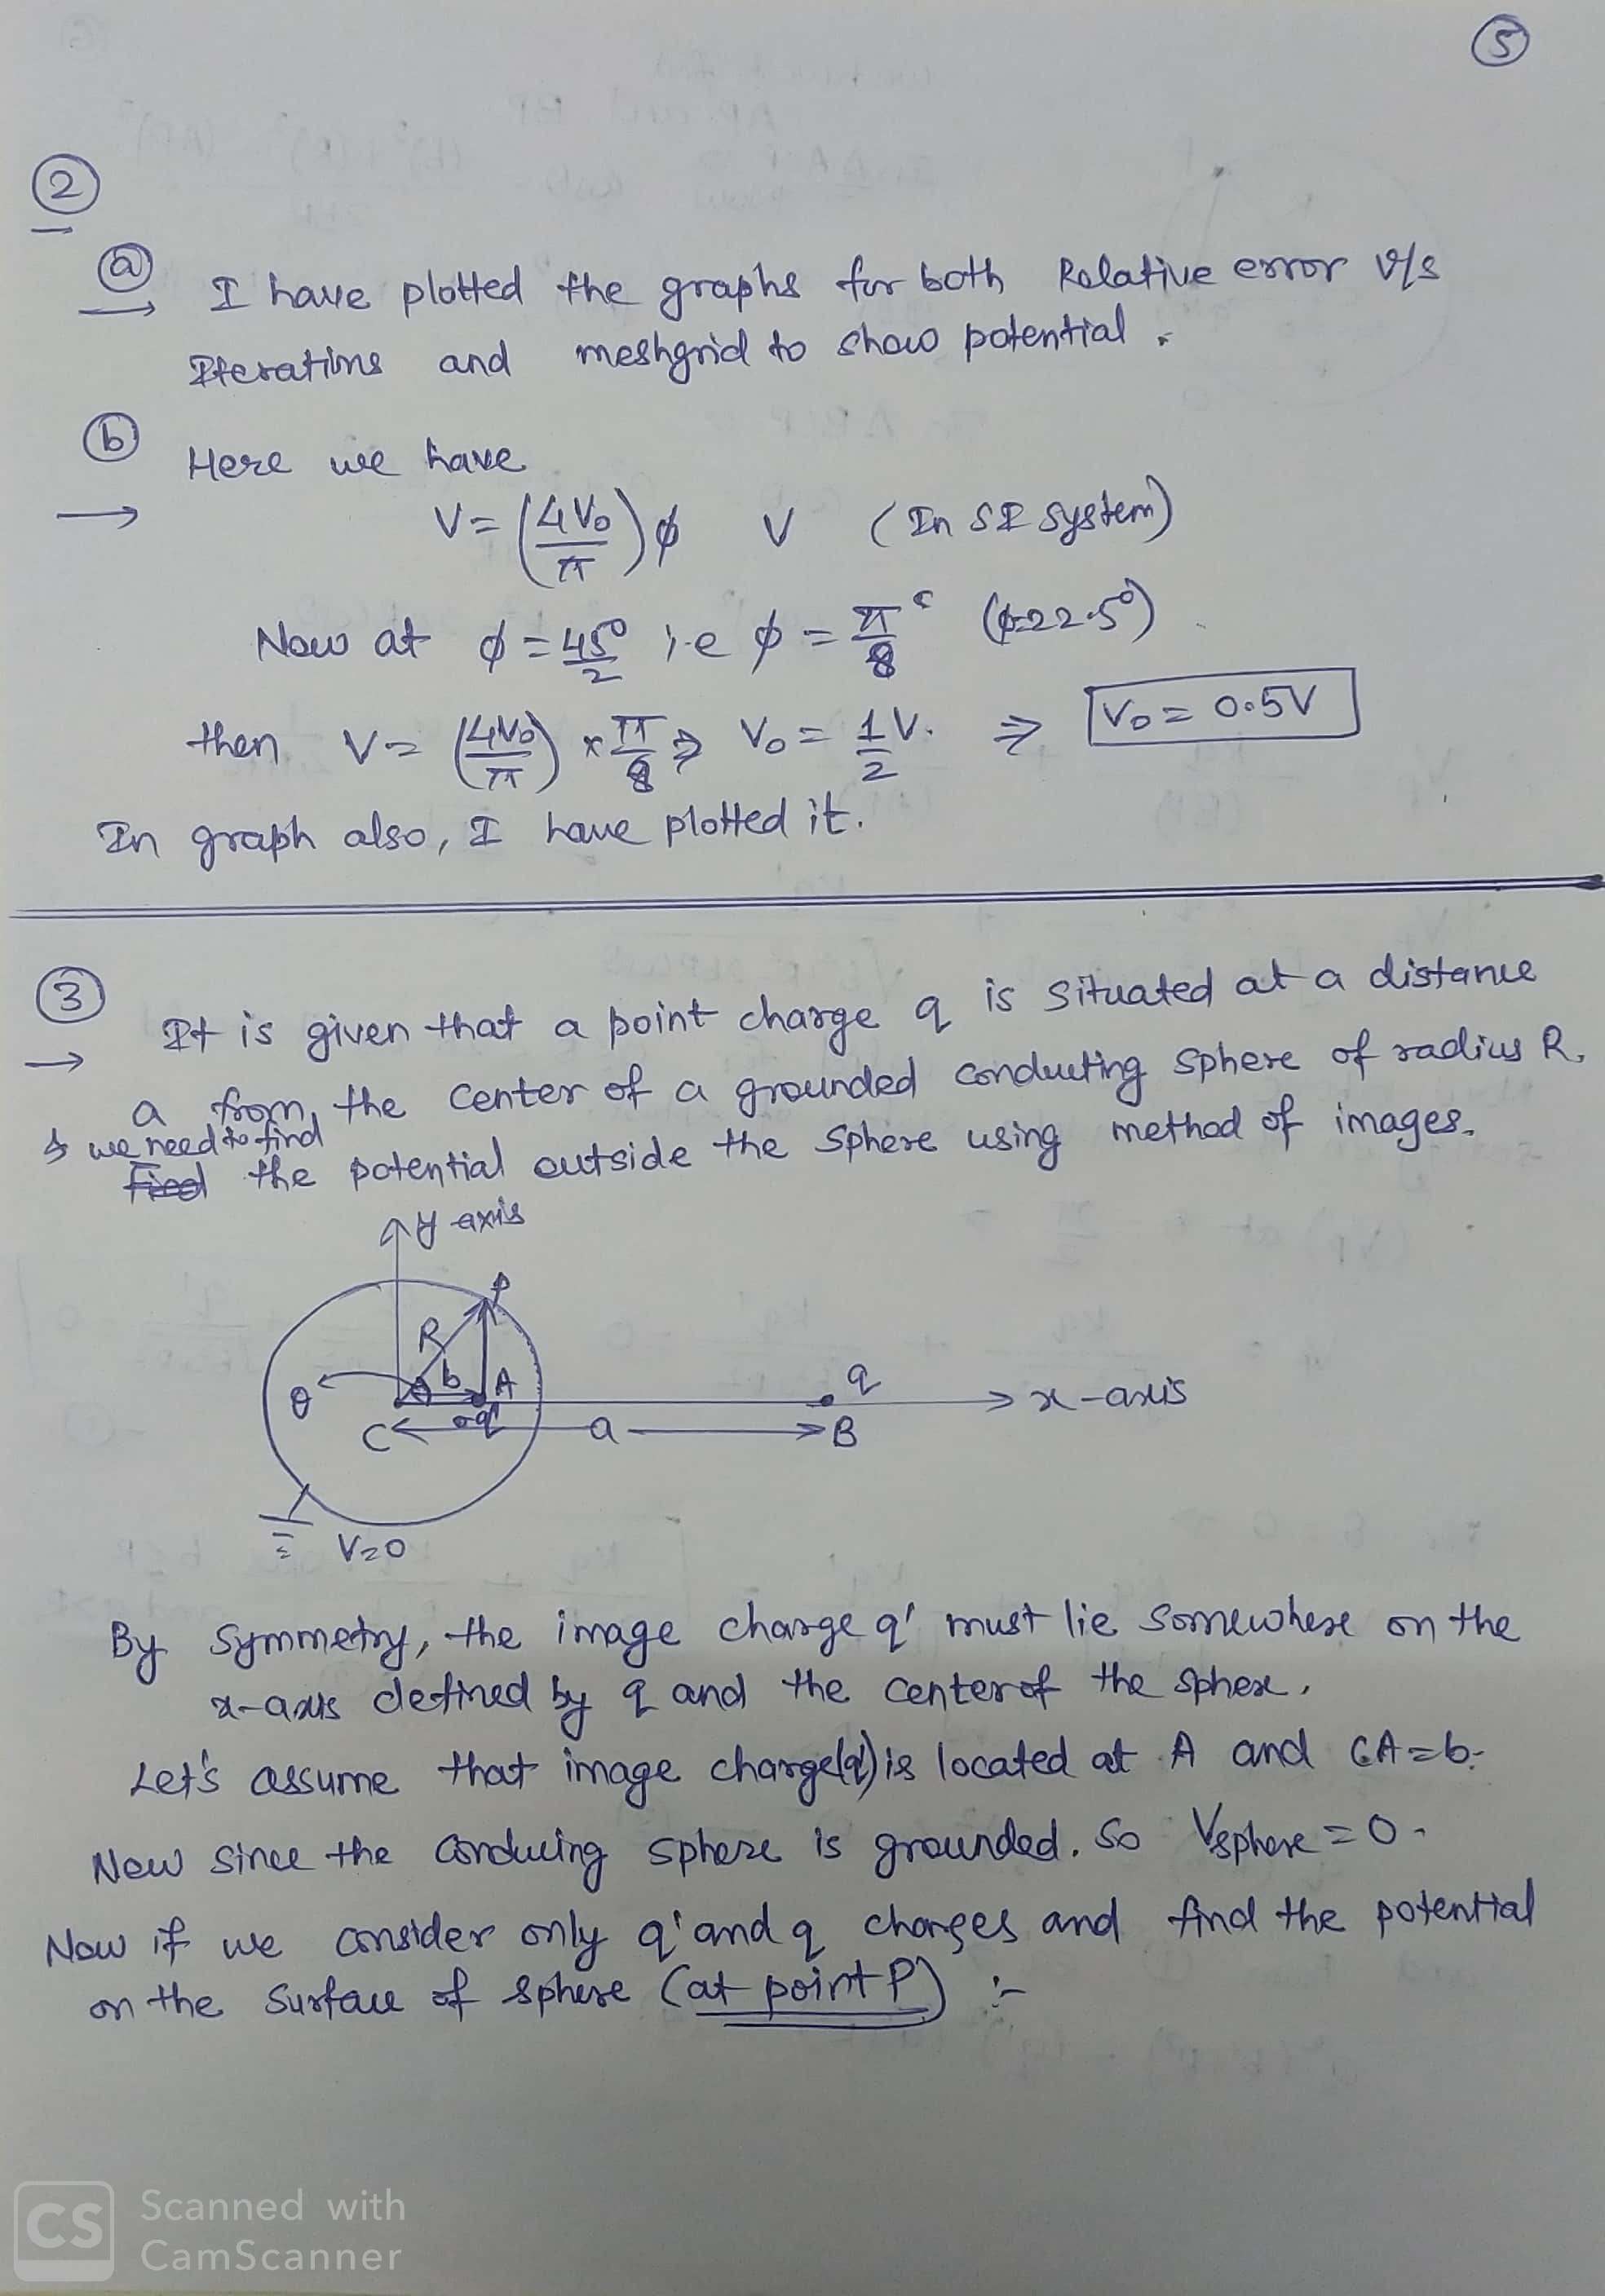 5
2
a I have plotted the graphs for both Relative error v/s
Iterations and meshgrid to show potential.
b Here we have
V = (4V₀/π) φ V (In SI system)
Now at φ = 45°/2 i.e φ = π/8 ᶜ (φ=22.5°)
then V = (4V₀/π) × π/8 ⇒ V₀ = 1/2 V. ⇒ V₀ = 0.5V
In graph also, I have plotted it.
3 It is given that a point charge q is situated at a distance
a from the center of a grounded conducting sphere of radius R.
& we need to find
Find the potential outside the sphere using method of images.
y axis
P
R
θ
b
A
q
x-axis
C
q'
a
B
V=0
By symmetry, the image charge q' must lie somewhere on the
x-axis defined by q and the center of the sphere.
Let's assume that image charge(q') is located at A and CA=b.
Now since the conducing sphere is grounded. So Vsphere = 0.
Now if we consider only q' and q charges and find the potential
on the surface of sphere (at point P) :-
CS Scanned with
CamScanner